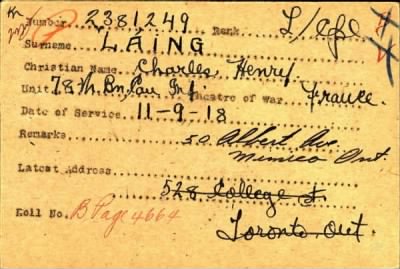 Number 2381249 Rank L/Cpl.
Surname LAING
Christian Name Charles Henry.
Unit 78th Bn. Can Inf. Theatre of war France.
Date of Service 11-9-18
Remarks 50 Albert Ave
Mimico Ont.
Latest Address
528 College St.
Toronto Ont
Roll No. B Page 4664